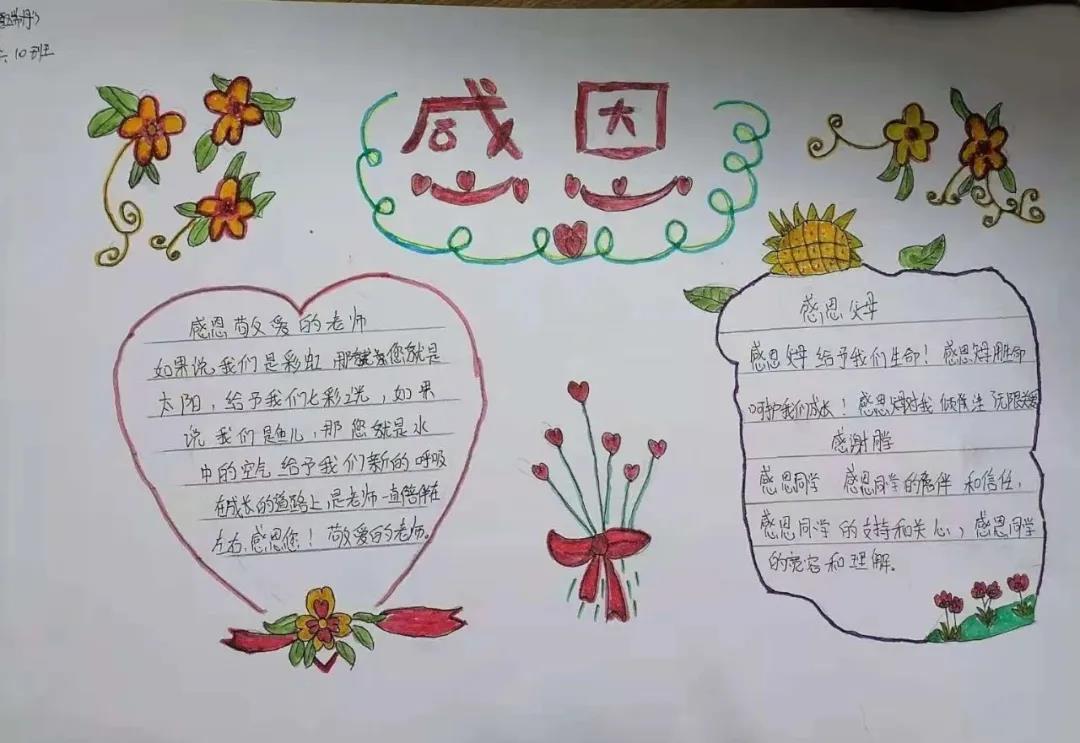 六、10班
感恩
感恩敬爱的老师
如果说,我们是彩虹那就您就是
太阳,给予我们七彩之光,如果
说我们是鱼儿,那您就是水
中的空气给予我们新的呼吸
在成长的道路上,是老师一直陪伴在
左右,感恩您!敬爱的老师。
感恩父母
感恩父母给予我们生命!感恩父母用生命
呵护我们成长!感恩父母对我倾注无限关爱
感谢同学
感恩同学 感恩同学的陪伴和信任,
感恩同学的支持和关心,感恩同学
的宽容和理解。